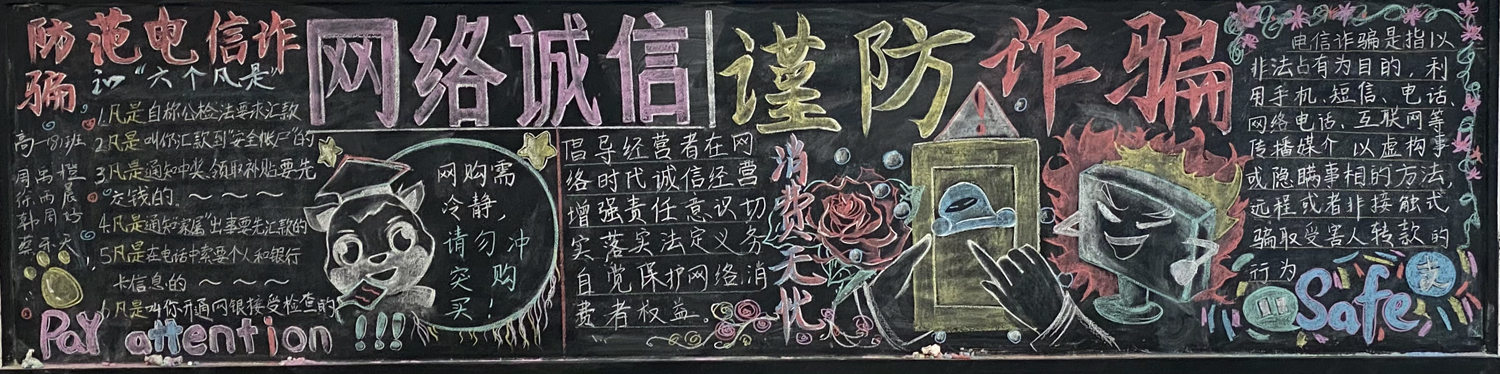 防范电信诈
骗
和“六个凡是”
1.凡是自称公检法要求汇款
2.凡是叫你汇款到“安全帐户”的
3.凡是通知中奖、领取补贴要先
交钱的.
4.凡是通知“家属”出事要先汇款的
5.凡是在电话中索要个人和银行
卡信息的
6.凡是叫你开通网银接受检查的
Pay attention !!!
网络诚信
网购需
冷静,
请勿冲
突购
买!
倡导经营者在网
络时代诚信经营
增强责任意识切
实落实法定义务
自觉保护网络消
费者权益.
谨防诈骗
消费无忧
电信诈骗是指以
非法占有为目的,利
用手机、短信、电话、
网络电话、互联网等
传播媒介 以虚构事
或隐瞒事相的方法,
远程或者非接触式
骗取受害人转款的
行为
Safe